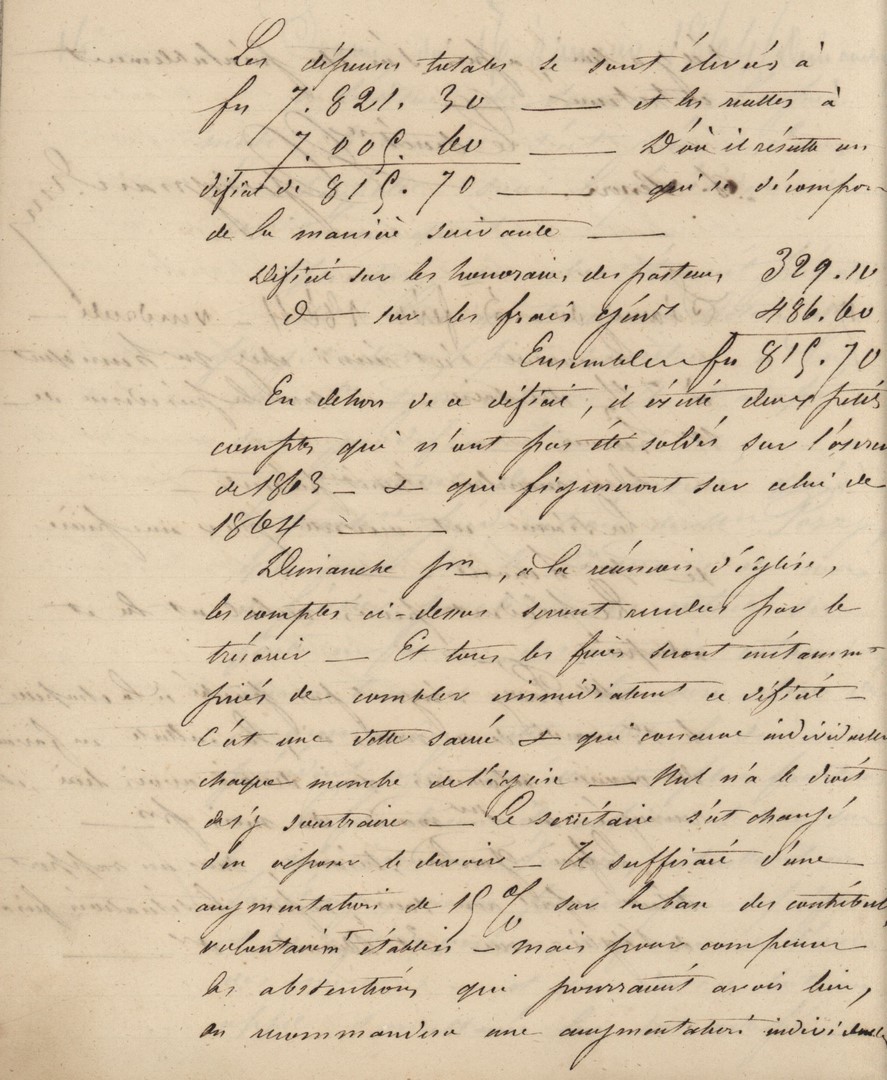 Les dépenses totales se sont élevées à
frs 7.821.30 — et les recettes à
7.005.60 — D'où il résulte un
déficit de 815.70 — qui se décompose
de la manière suivante —
Déficit sur les honoraires des pasteurs 329.10
d° — sur les frais génx 486.60
Ensemble frs 815.70
En dehors de ce déficit, il existe deux petits
comptes qui n'ont pas été soldés sur l'exerce
de 1863 — & qui figureront sur celui de
1864 —
Dimanche pn, à la réunion d'église,
les comptes ci-dessus seront rendus par le
trésorier — Et tous les frères seront instammt
priés de combler immédiatement ce déficit —
C'est une dette sacrée & qui concerne individuellt
chaque membre de l'église — Nul n'a le droit
de s'y soustraire — Le secrétaire s'est chargé
d'en exposer le devoir — Il suffirait d'une
augmentation de 15 % sur la base des contributs
volontairemt établies — mais pour compenser
les abstentions qui pourraient avoir lieu,
on recommandera une augmentation individuelle